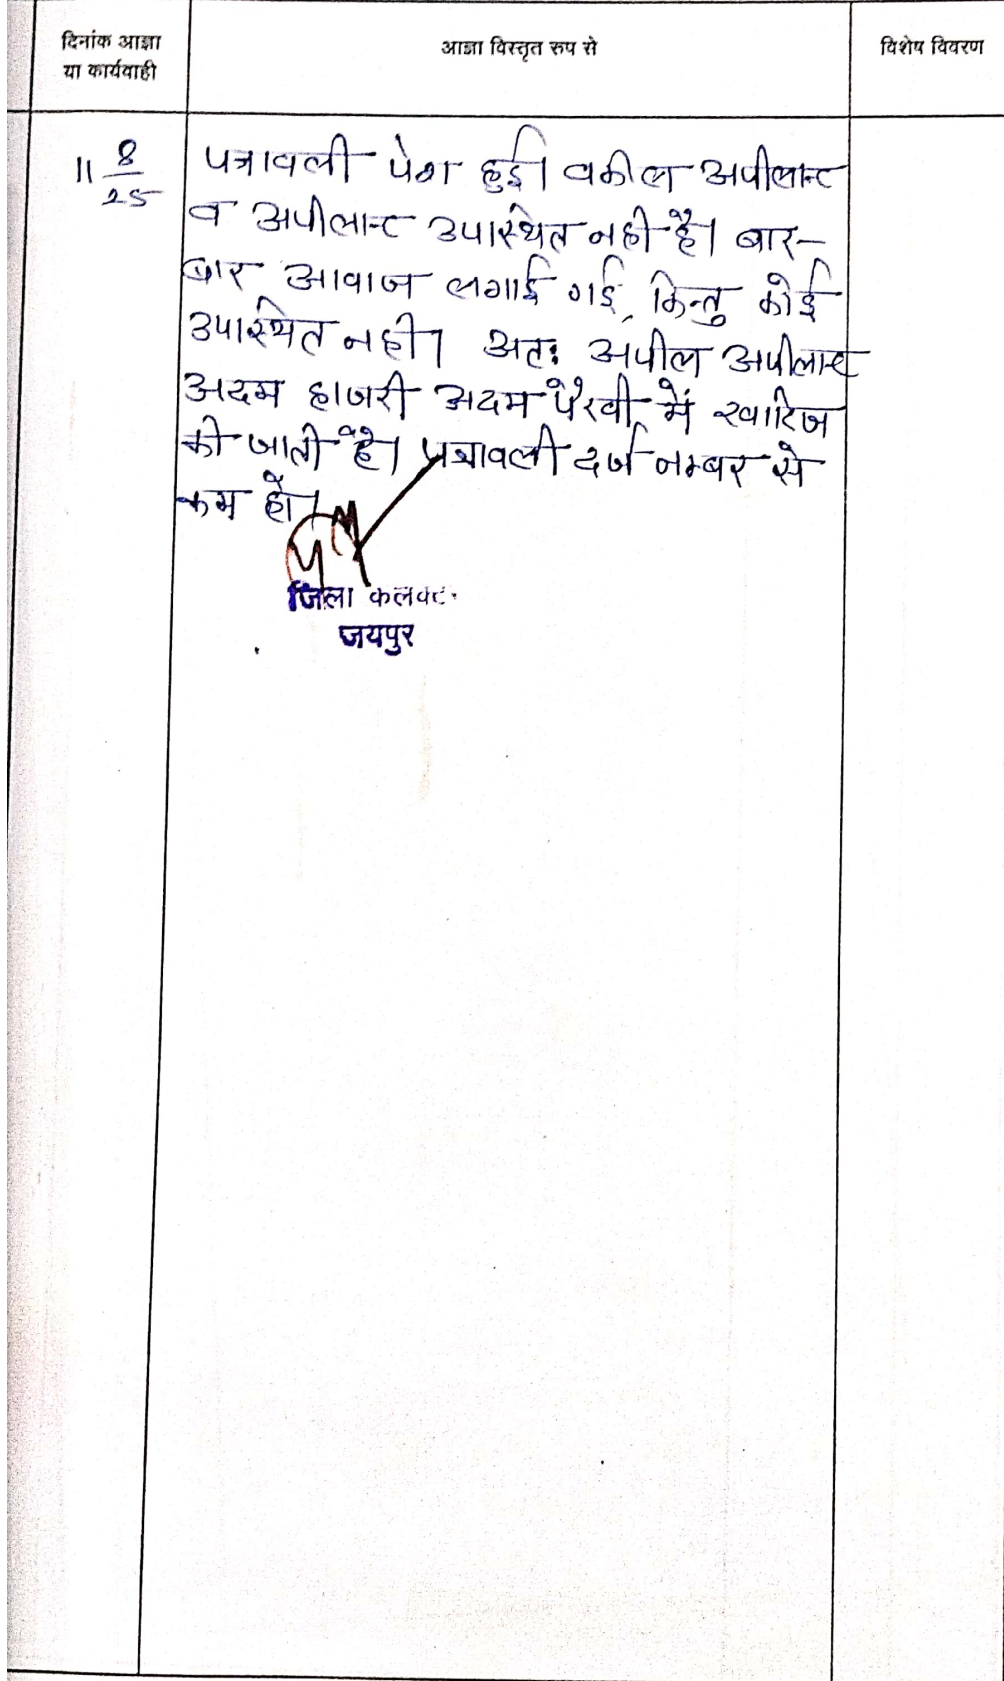 दिनांक आज्ञा
या कार्यवाही
आज्ञा विस्तृत रुप से
विशेष विवरण
11 8/25
पत्रावली पेश हुई। वकील अपीलान्ट
व अपीलान्ट उपस्थित नही है। बार-
बार आवाज लगाई गई, किन्तु कोई
उपस्थित नही। अतः अपील अपीलान्ट
अदम हाजरी अदम पैरवी में खारिज
की जाती है। पत्रावली दर्ज नम्बर से
कम हो।
जिला कलक्टर
जयपुर